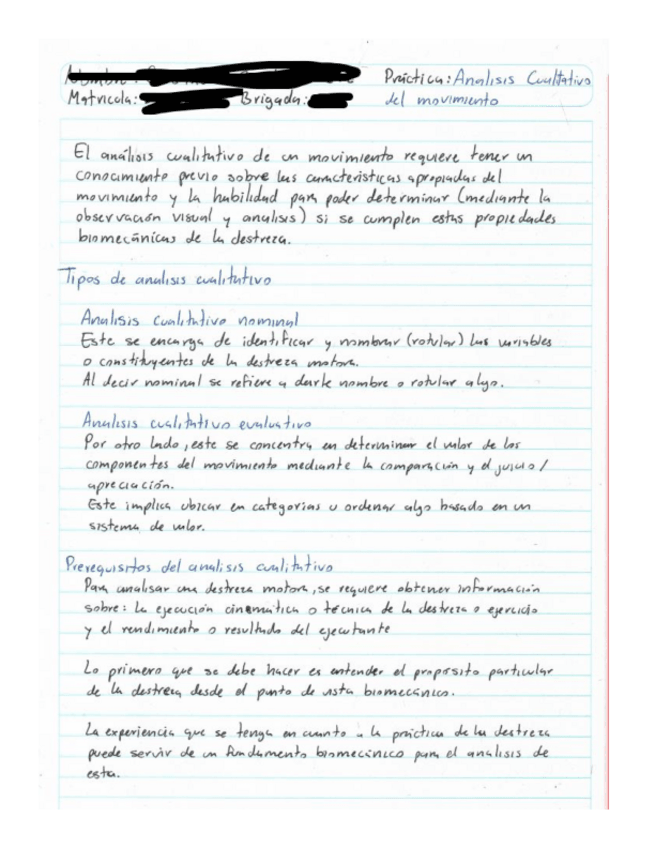 Práctica: Analisis Cualitativo
Matricula: Brigada: del movimiento
El análisis cualitativo de un movimiento requiere tener un
conocimiento previo sobre las características apropiadas del
movimiento y la habilidad para poder determinar (mediante la
observación visual y analisis) si se cumplen estas propiedades
biomecánicas de la destreza.
Tipos de analisis cualitativo
Analisis Cualitativo nominal
Este se encarga de identificar y nombrar (rotular) las variables
o constituyentes de la destreza motora.
Al decir nominal se refiere a darle nombre o rotular algo.
Analisis cualitativo evaluativo
Por otro lado, este se concentra en determinar el valor de los
componentes del movimiento mediante la comparación y el juicio/
apreciación.
Este implica ubicar en categorias u ordenar algo basado en un
sistema de valor.
Prerequisitos del analisis cualitativo
Para analisar una destreza motora, se requiere obtener información
sobre: la ejecución cinemática o técnica de la destreza o ejercicio
y el rendimiento o resultado del ejecutante
Lo primero que se debe hacer es entender el propósito particular
de la destreza desde el punto de vista biomecánico.
La experiencia que se tenga en cuanto a la práctica de la destreza
puede servir de un fundamento biomecánico para el analisis de
esta.